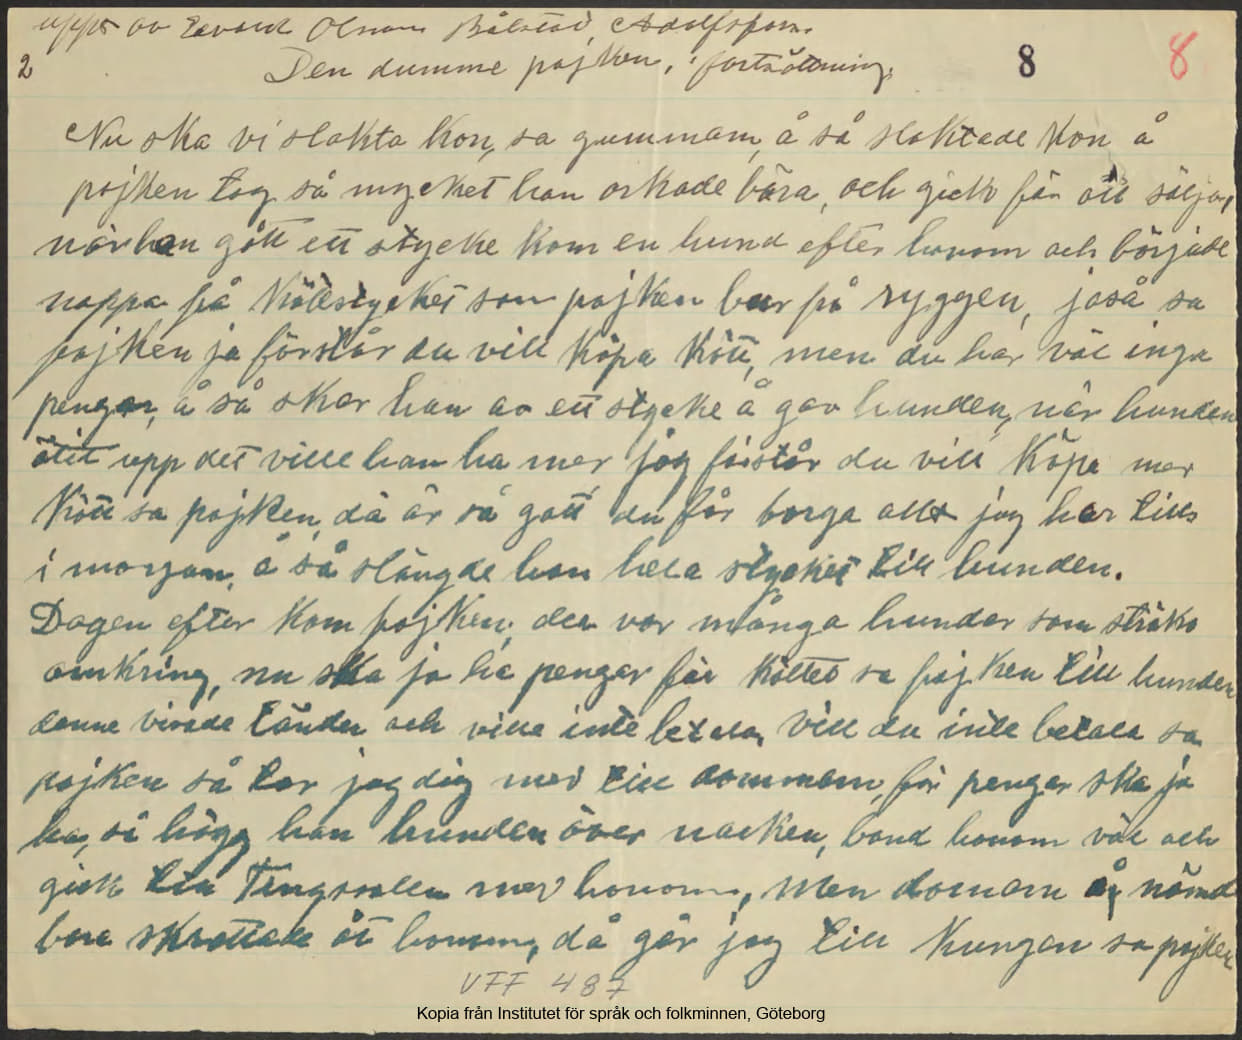 uppt av Edvard Olsson Bålstad, Adolfsfors.
2 Den dumme pojken, fortsättning. 8 8
Nu ska vi slakta kon, sa gumman, å så slaktade kon å
pojken tog så mycket han orkade bära, och gick för att sälja,
när han gått ett stycke kom en hund efter honom och började
nappa på köttstycket som pojken bar på ryggen, jaså sa
pojken ja förstår du vill köpa kött, men du har väl inga
pengar, å så skar han av ett stycke å gav hunden, när hunden
ätit upp det ville han ha mer, jag förstår du vill köpa mer
kött sa pojken, då är så gott du får borga allt jag har tills
i morgon, å så slängde han hela stycket till hunden.
Dagen efter kom pojken, der var många hundar som ströko
omkring, nu ska ja ha pengar för köttet sa pojken till hunden
denne visade tänder och ville inte betala, vill du inte betala sa
pojken så tar jag dig med till domaren, för pengar ska ja
ha, så högg han hunden över nacken, band honom väl och
gick till Tingssalen med honom, Men domarn å nämd
bara skrattade åt honom, då går jag till kungen sa pojken
VFF 487
Kopia från Institutet för språk och folkminnen, Göteborg